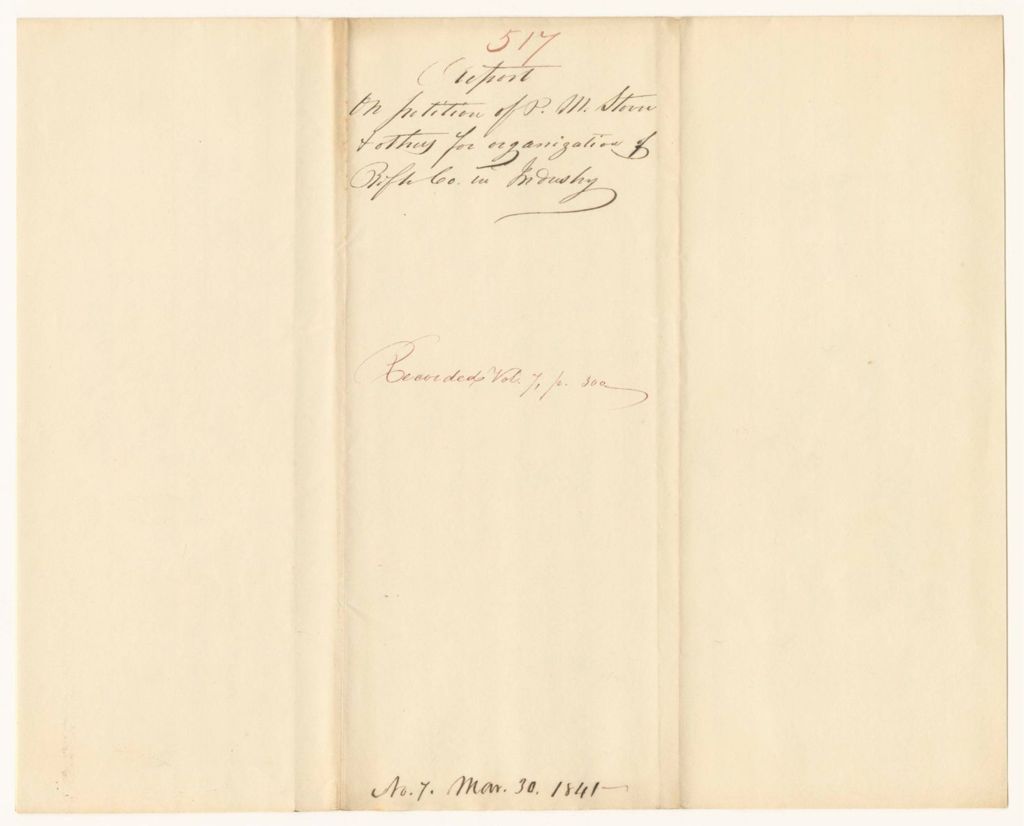 517
Report
On petition of P. M. Stone
& others for organization of
Rifle Co. in Industry
Recorded Vol. 7, p. 300
No. 7. Mar. 30. 1841